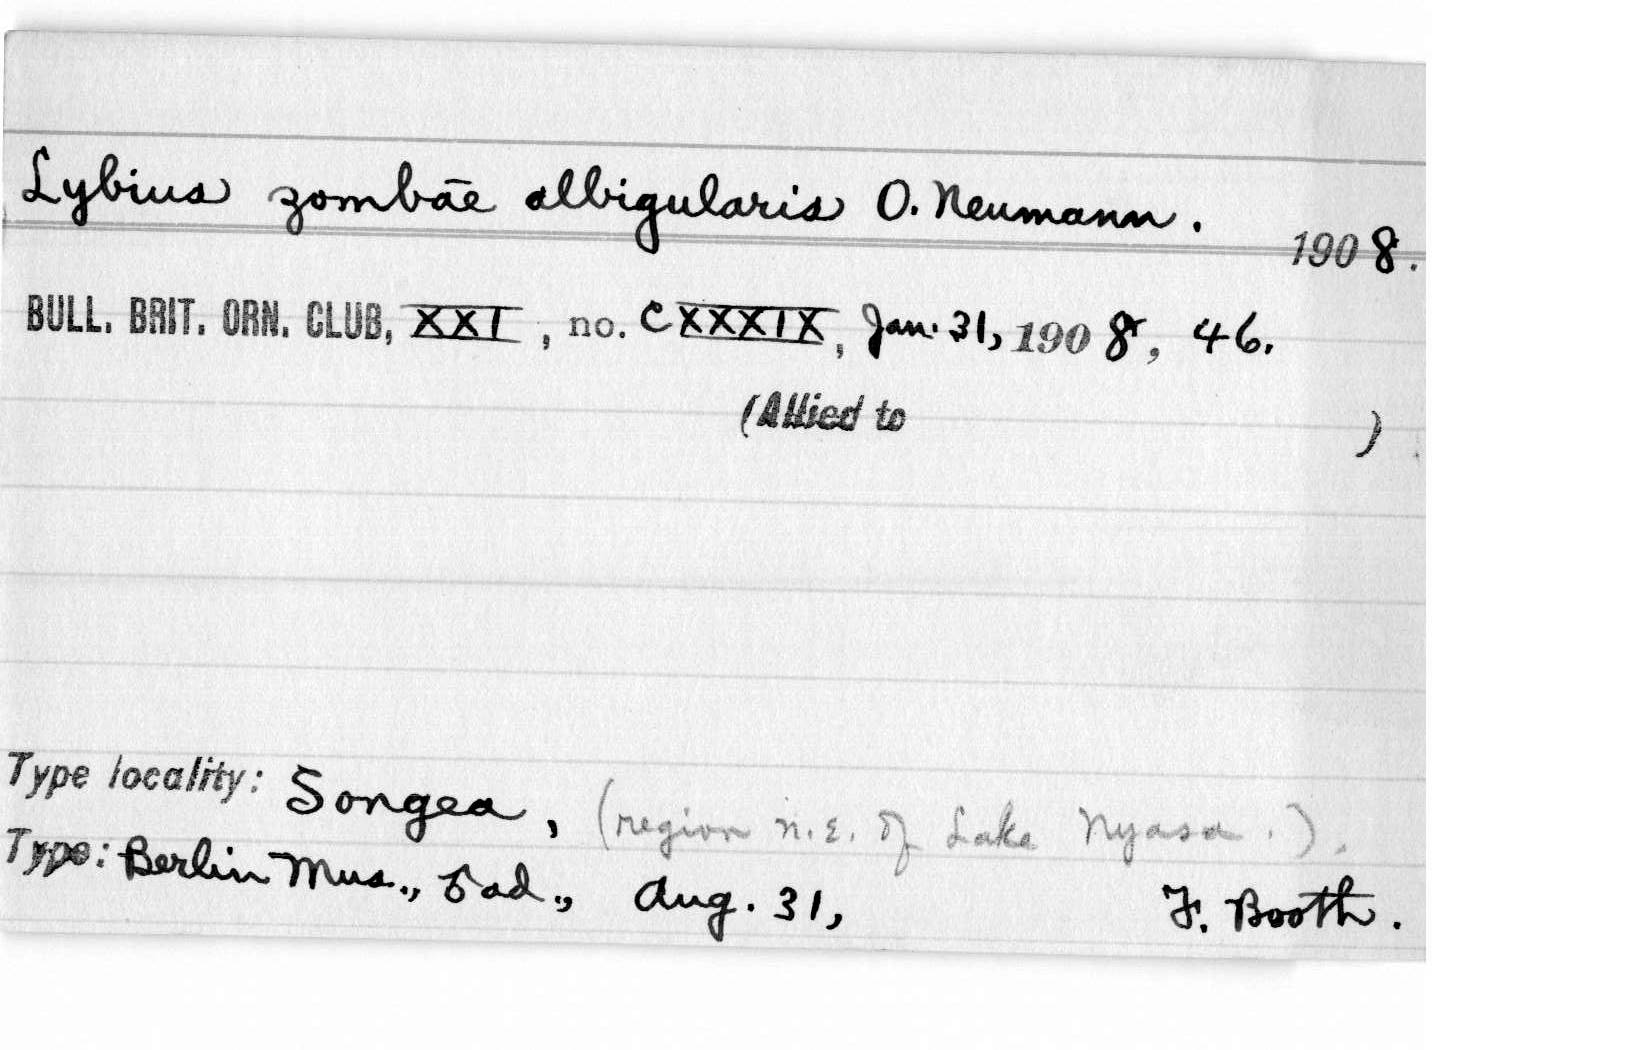 Lybius zombae albigularis O. Neumann.
1908.
BULL. BRIT. ORN. CLUB, XXI, no. CXXXIX, Jan. 31, 1908, 46.
(Allied to )
Type locality: Songea, (region n.E. of Lake Nyasa.).
Type: Berlin Mus., ad., Aug. 31, F. Booth.